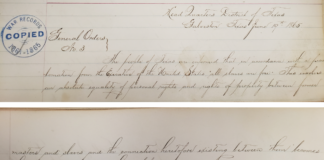 WAR RECORDS
COPIED
1861-1865
Head Quarters District of Texas
Galveston Texas June 19th 1865.
General Orders
No. 3
The people of Texas are informed that in accordance with a Pro-
clamation from the Executive of the United States all slaves are free. This involves
an absolute equality of personal rights and rights of property between former
masters and slaves and the connection heretofore existing between them becomes